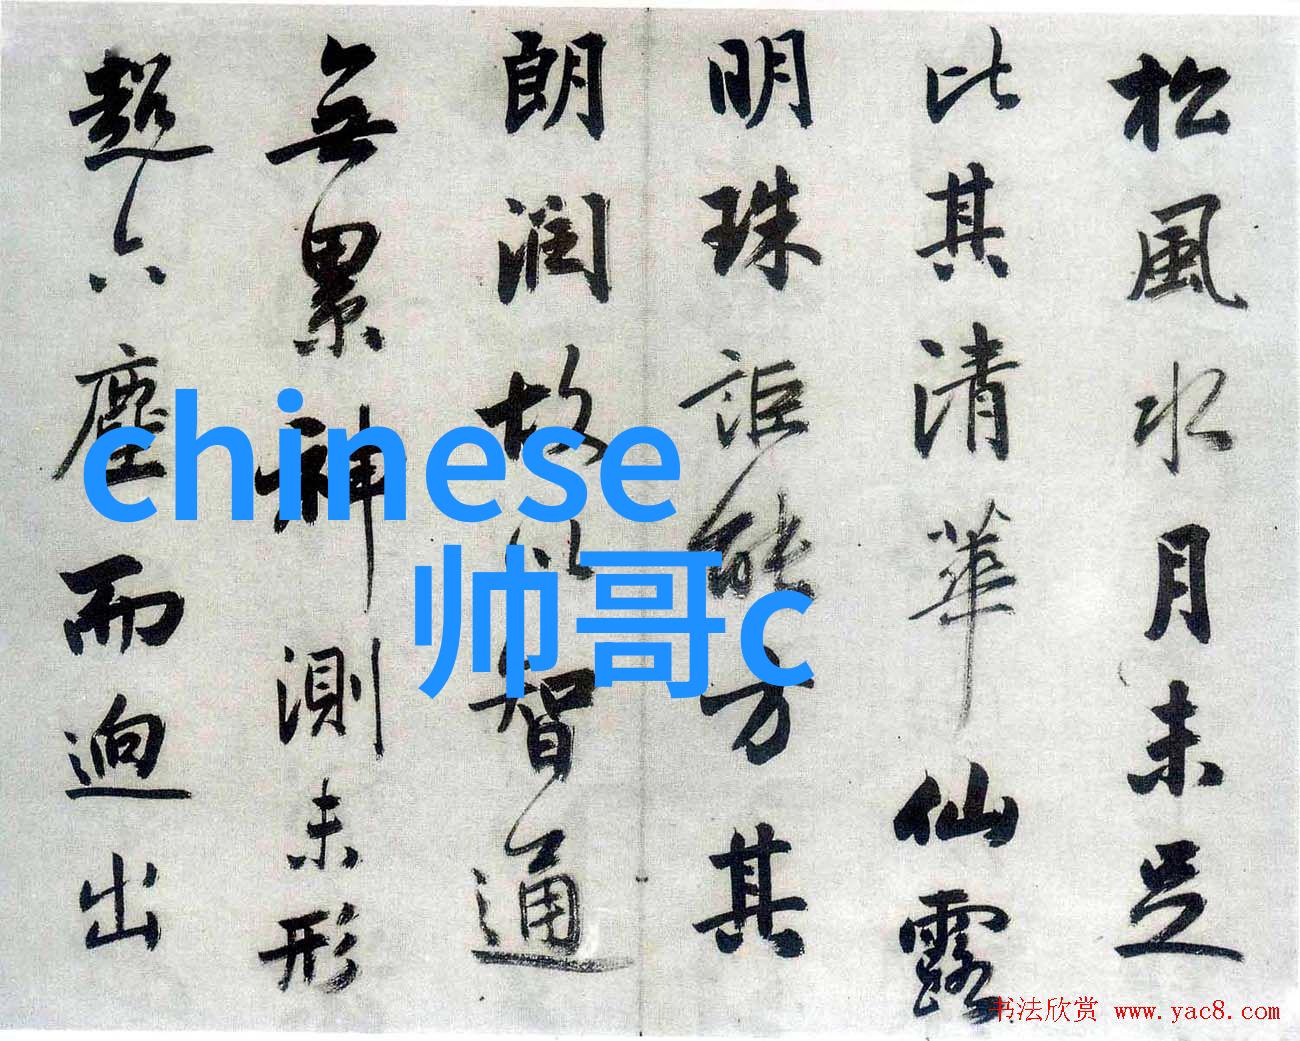 松風水月未足
比其清華仙露
明珠詎能方其
朗潤故以智通
無累神測未形
超六塵而迥出
chinese
帅哥c
书法欣赏 www.yac8.com